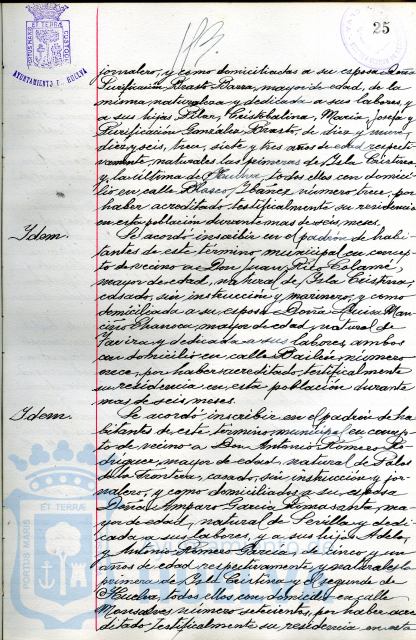 25
AYUNTAMIENTO DE HUELVA
jornalero, y como domiciliadas a su esposa Doña
Purificación Braste Barra, mayor de edad, de la
misma naturaleza y dedicada a sus labores y
a sus hijas Pilar, Cristobalina, María Josefa y
Purificación González Braste, de diez y nueve,
diez y seis, trece, siete y tres años de edad respecti-
vamente, naturales las primeras de Isla Cristina
y la última de Huelva, todos ellos con domici-
lio en calle Blasco Ibáñez número trece, por
haber acreditado testificalmente su residencia
en esta población durante mas de seis meses.
Idem.
Se acordó inscribir en el padrón de habi-
tantes de este término municipal en concep-
to de vecino a Don Juan Rito Colamé,
mayor de edad, natural de Isla Cristina,
casado, sin instrucción y marinero, y como
domiciliada a su esposa Doña
mayor de edad, natural de
Tavira y dedicada a sus labores, ambos
con domicilio en calle Bailén número
once, por haber acreditado testificalmente
su residencia en esta población durante
mas de seis meses.
Idem.
Se acordó inscribir en el padrón de ha-
bitantes de este término municipal en concep-
to de vecino a Don Antonio Romero Ro-
dríguez, mayor de edad, natural de Palos
de la Frontera, casado, sin instrucción y jor-
nalero, y como domiciliados a su esposa
Doña Amparo García Romasanta, ma-
yor de edad, natural de Sevilla y dedi-
cada a sus labores, y a sus hijos Adela,
y Antonio Romero García, de cinco y un
años de edad respectivamente, y naturales la
primera de Isla Cristina y el segundo de
Huelva, todos ellos con domicilio en calle
número setecientos, por haber acre-
ditado testificalmente su residencia en esta
PORTUS MARIS ET TERRAE CUSTODIA